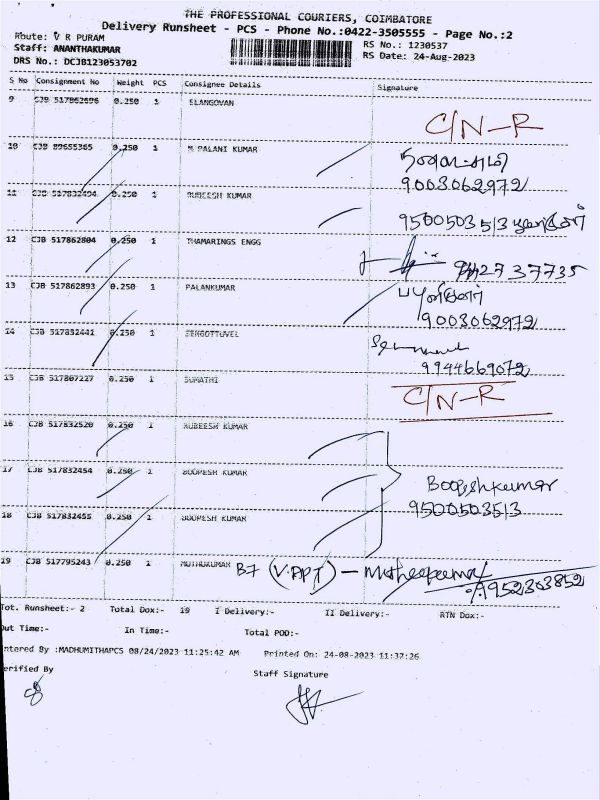 THE PROFESSIONAL COURIERS, COIMBATORE
Delivery Runsheet - PCS - Phone No.:0422-3505555 - Page No.:2
Route: V R PURAM
RS No.: 1230537
Staff: ANANTHAKUMAR
RS Date: 24-Aug-2023
DRS No.: DCJB123053702
S No Consignment No Weight PCS Consignee Details Signature
9 CJB 517862696 0.250 1 ELANGOVAN
C/N-R
10 CJB 89655365 0.250 1 M PALANI KUMAR
9003062972
11 CJB 517832494 0.250 1 RUBEESH KUMAR
9500503513
12 CJB 517862804 0.250 1 THAMARINGS ENGG
13 CJB 517862893 0.250 1 PALANKUMAR
9003062972
14 CJB 517832441 0.250 1 SENGOTTUVEL
9944669072
15 CJB 517807227 0.250 1 SUMATHI C/N-R
16 CJB 517832520 0.250 1 RUBEESH KUMAR
17 CJB 517832454 0.250 1 BOOPESH KUMAR Boopeshkumar
9500503513
18 CJB 517832455 0.250 1 BOOPESH KUMAR
19 CJB 517795243 0.250 1 MUTHUKUMAR B7 (V.APT) -
9952303852
Tot. Runsheet:- 2 Total Dox:- 19 I Delivery:- II Delivery:- RTN Dox:-
Out Time:- In Time:- Total POD:-
ntered By :MADHUMITHAPCS 08/24/2023 11:25:42 AM Printed On: 24-08-2023 11:37:26
erified By Staff Signature